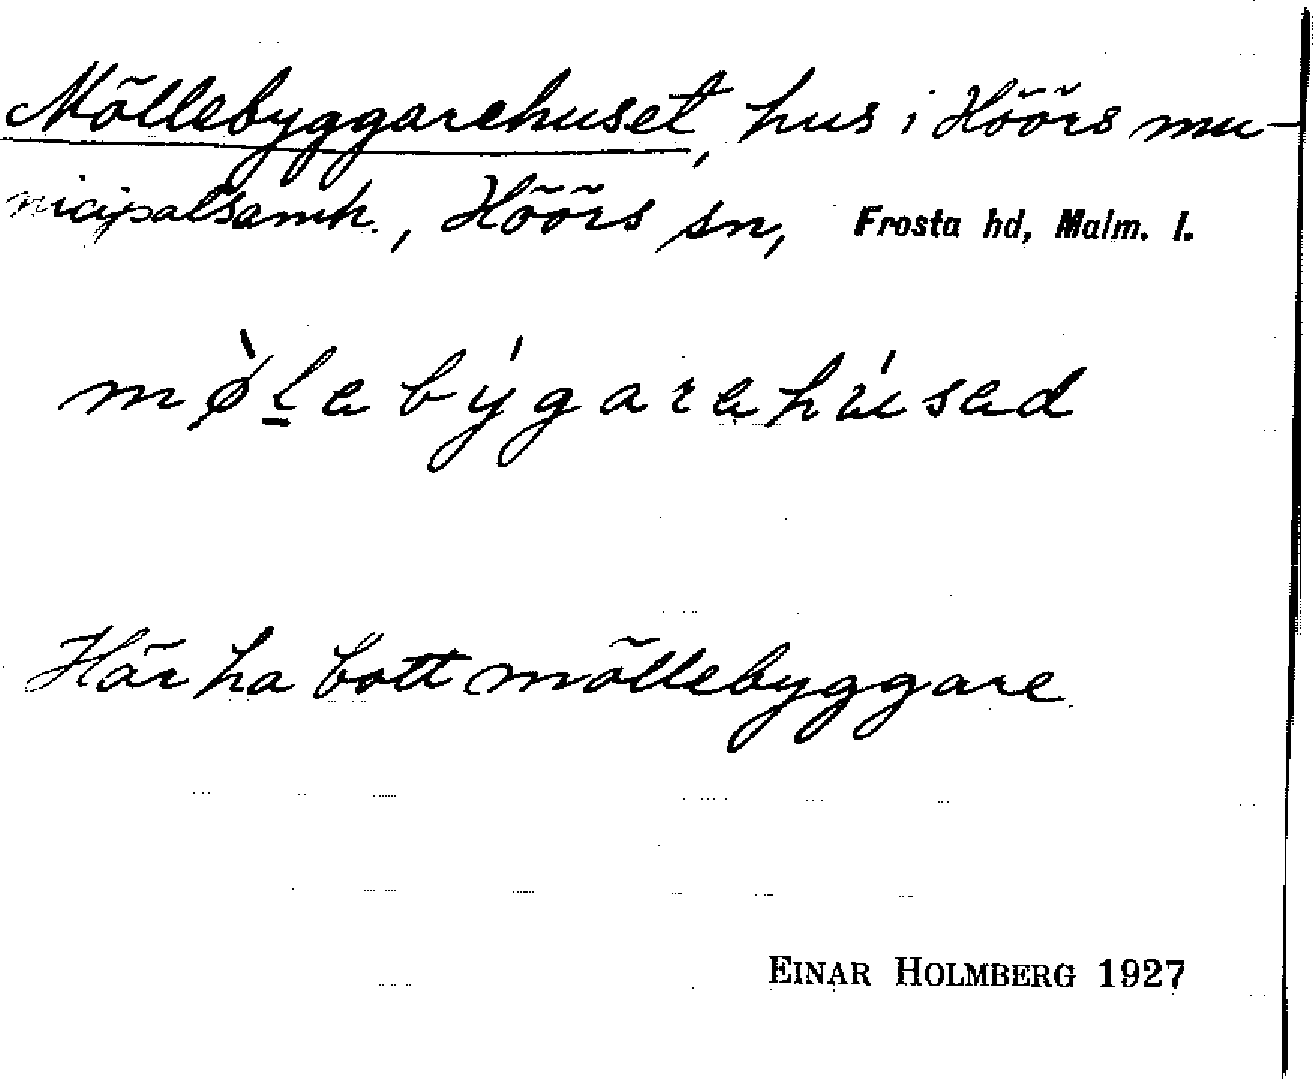 Möllebyggarehuset, hus i Höörs mu-
nicipalsamh., Höörs sn, Frosta hd, Malm. l.
mø̀l̲ebýgarehúsed
Här ha bott möllebyggare.
EINAR HOLMBERG 1927